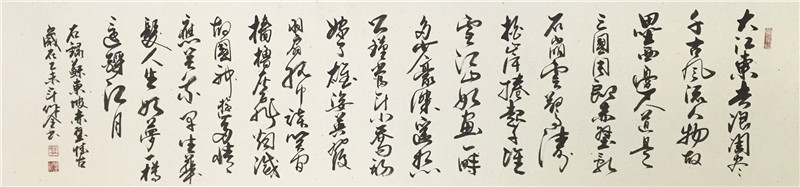 大江東去浪淘盡
千古風流人物故
壘西邊人道是
三國周郎赤壁亂
石崩雲驚濤
拍岸捲起千堆
雪江山如畫一時
多少豪傑遙想
公瑾當年小喬初
嫁了雄姿英發
羽扇綸巾談笑間
檣櫓灰飛烟滅
故國神遊多情
應笑我早生華
髮人生如夢一樽
還酹江月
右錄蘇東坡赤壁懷古
歲在乙未年 書